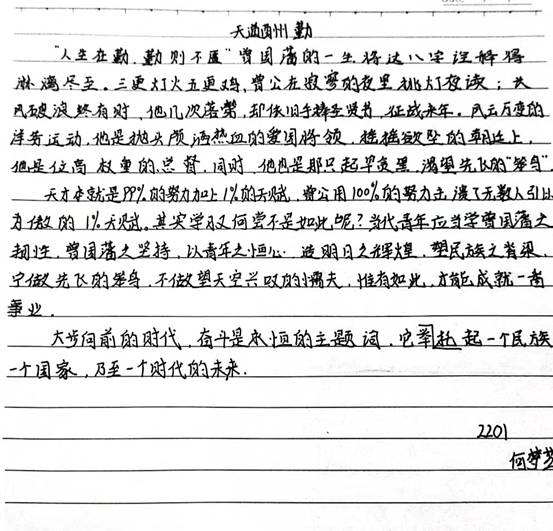 天道酬州 勤
"人生在勤,勤则不匮"曾国藩的一生将这八字诠释得
淋漓尽至。三更灯火五更鸡,曾公在寂寥的夜里挑灯夜读;长
风破浪终有时,他几次落榜,却依旧手捧圣贤书,征战来年。风云万变的
洋务运动,他是抛头颅洒热血的爱国将领,摇摇欲坠的朝廷上,
他是位高权重的总督,同时,他也是那只起早贪黑,渴望先飞的"笨鸟"
天才本就是99%的努力加上1%的天赋,曾公用100%的努力击溃了无数人引以
为傲的1%天赋。其实学习又何尝不是如此呢?当代青年应当学曾国藩之
韧性,曾国藩之坚持,以青年之恒心,造明日之辉煌,塑民族之脊梁,
宁做先飞的笨鸟,不做望天空兴叹的懦夫,惟有如此,才能成就一番
事业.
大步向前的时代,奋斗是永恒的主题词,它举起一个民族
一个国家,乃至一个时代的未来.
2201
何梦